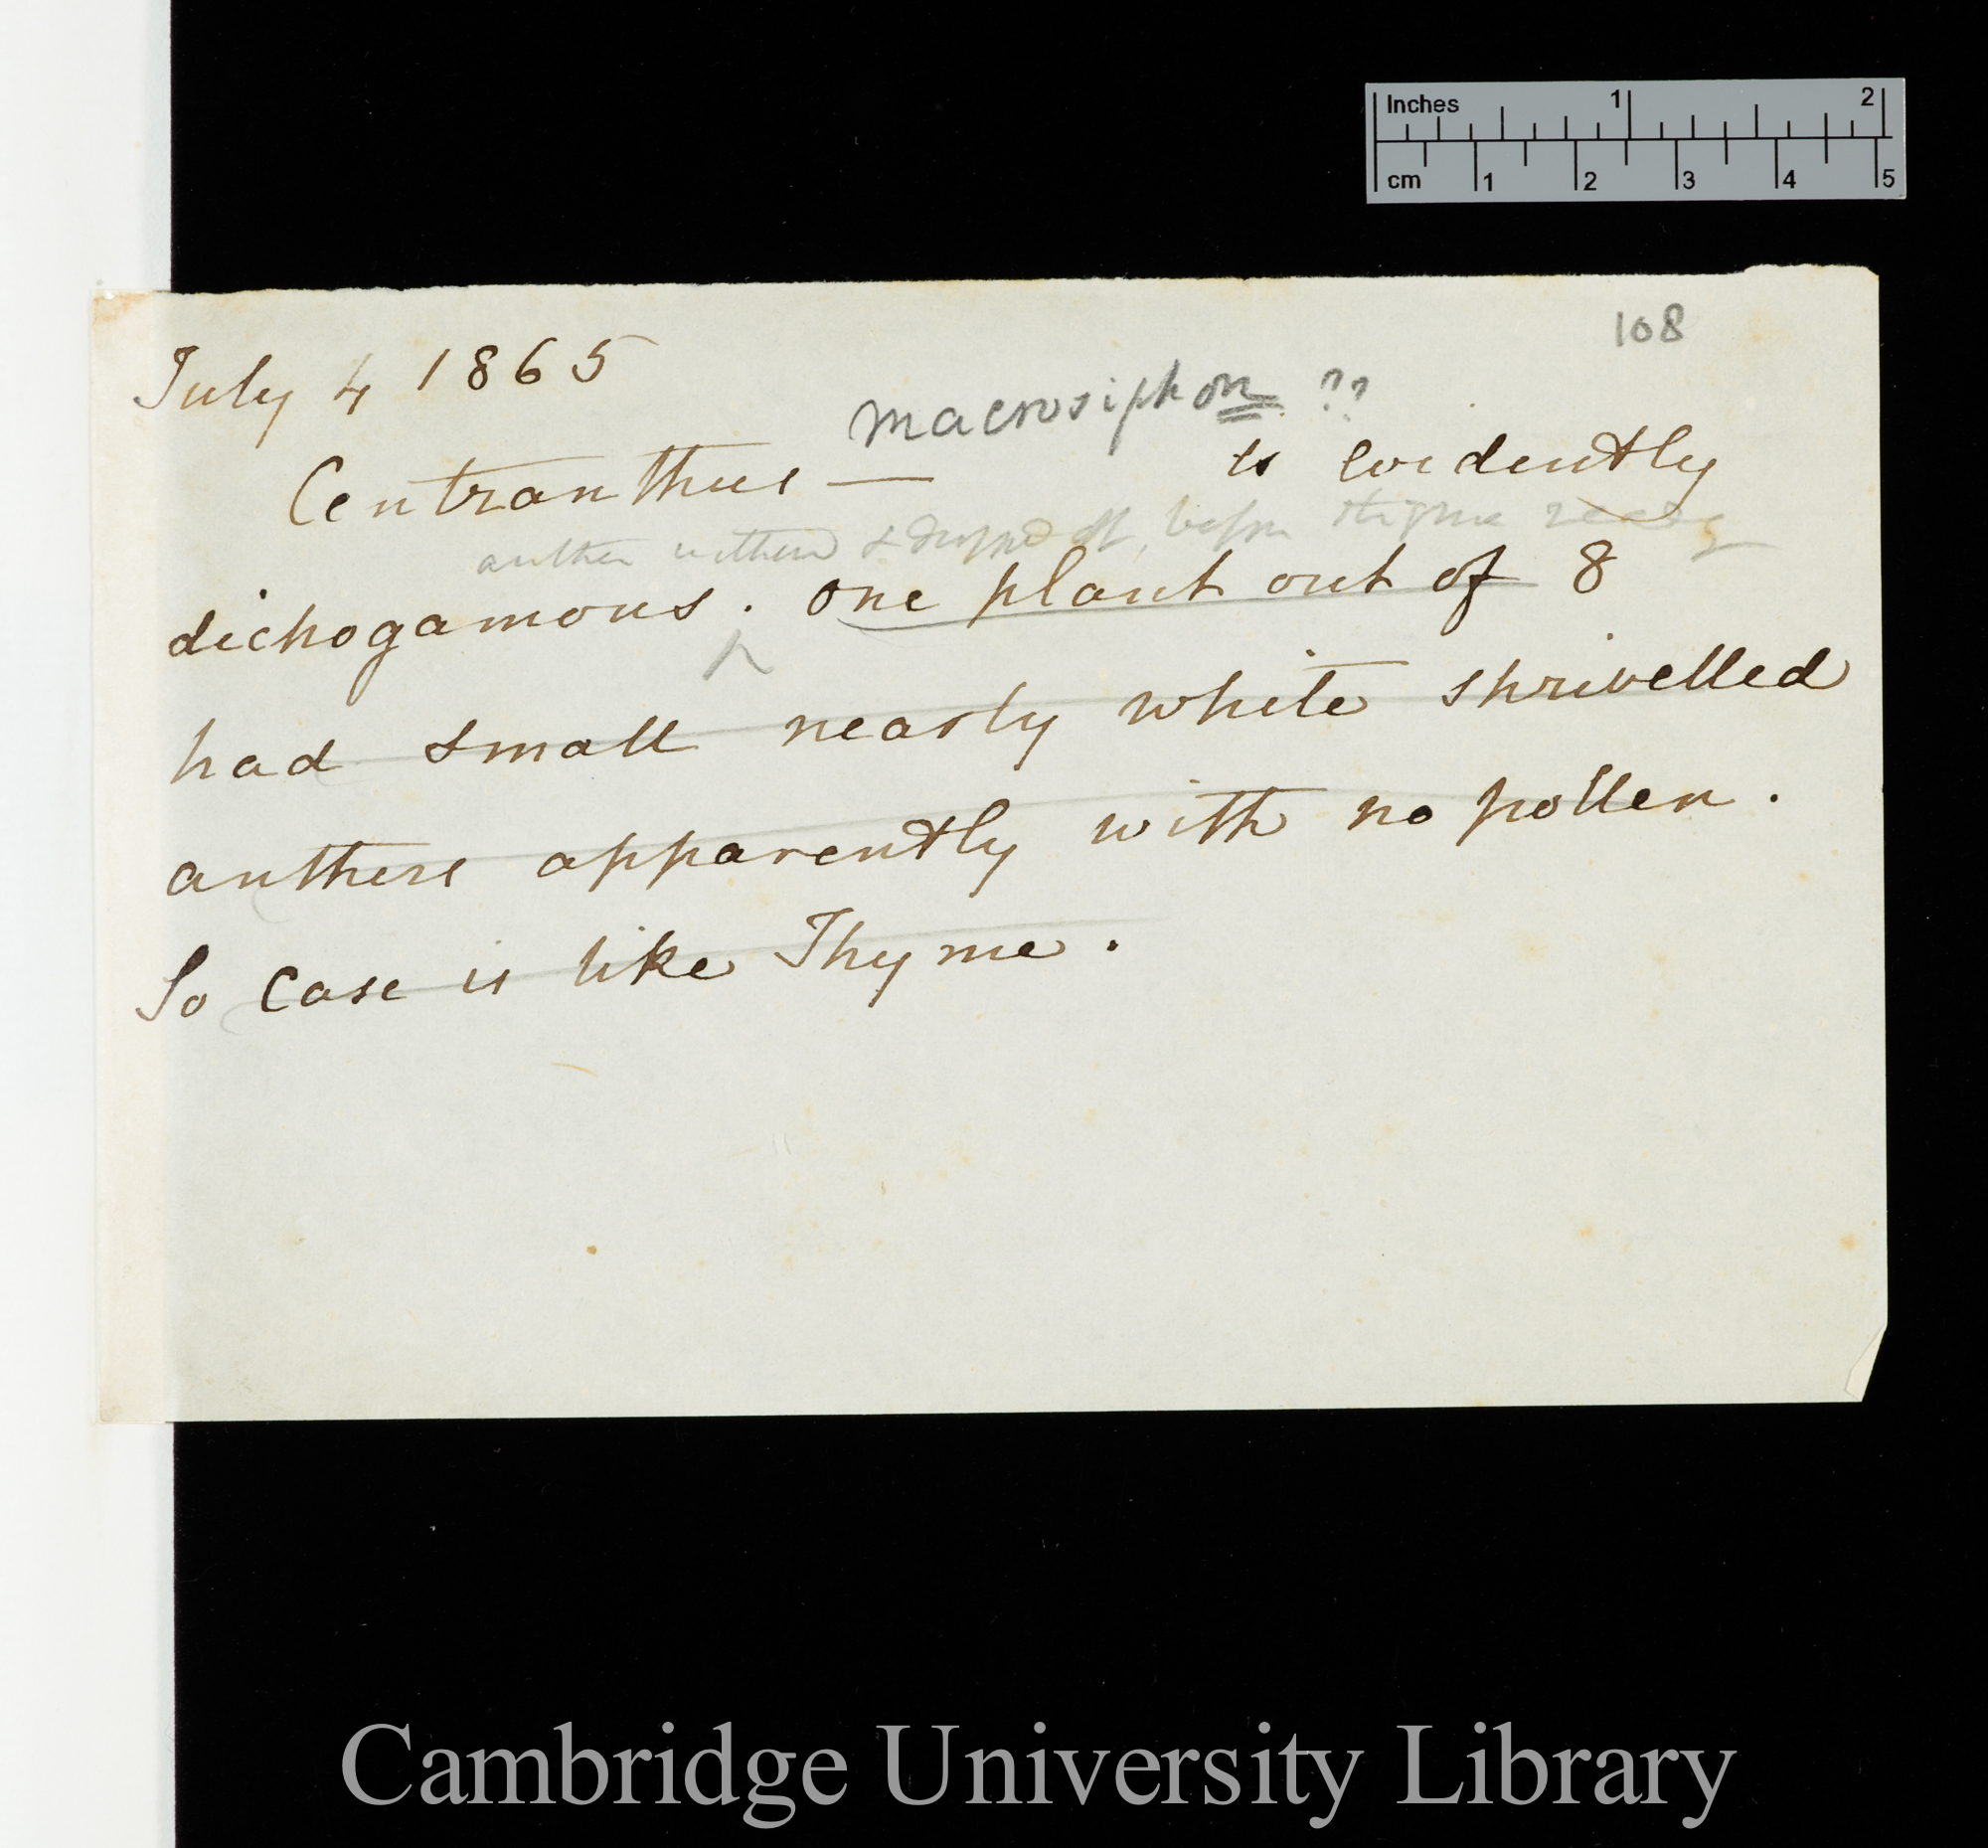 Inches 1 2
cm 1 2 3 4 5
108
July 4 1865
macrosiphon ??
Centranthus — is evidently
anther withered & dropped off, before stigma ready
dichogamous. One plant out of 8
had small nearly white shrivelled
anthers apparently with no pollen.
So case is like Thyme.
Cambridge University Library